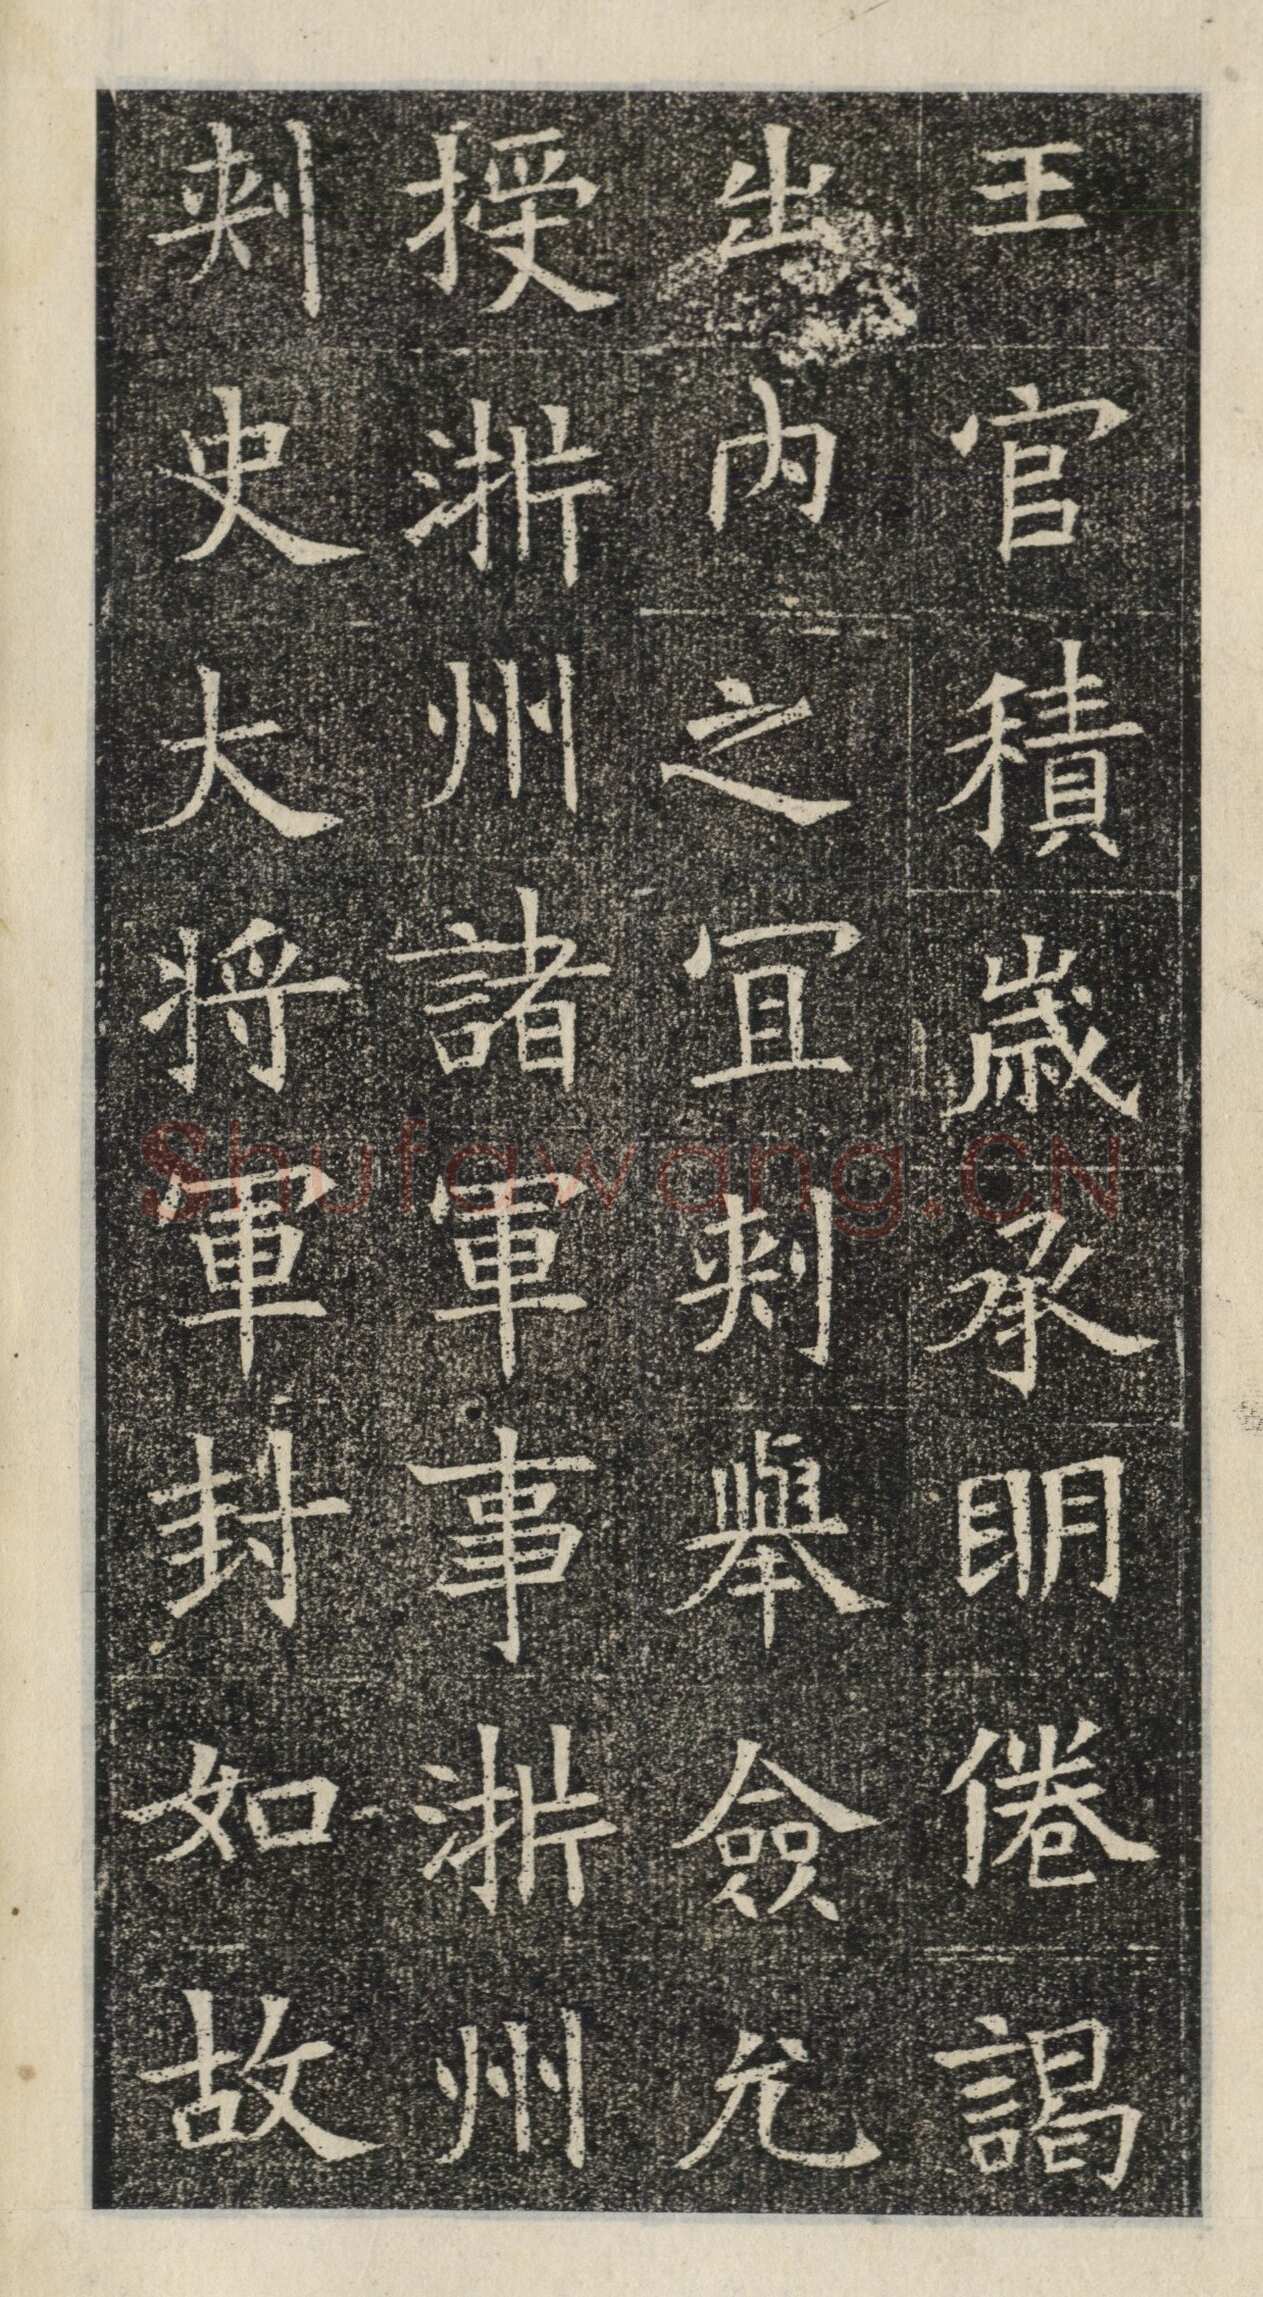 王官積歲承明倦謁
出内之宜刾舉僉允
授浙州諸軍事浙州
刾史大将軍封如故
Shufawang.CN